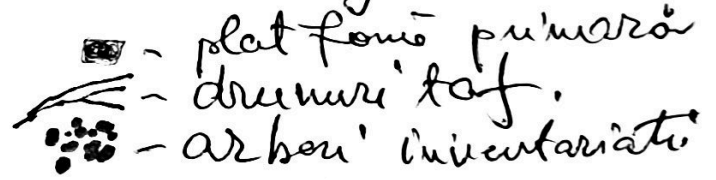 - platformă primară
- drumuri taf.
- arbori inventariati